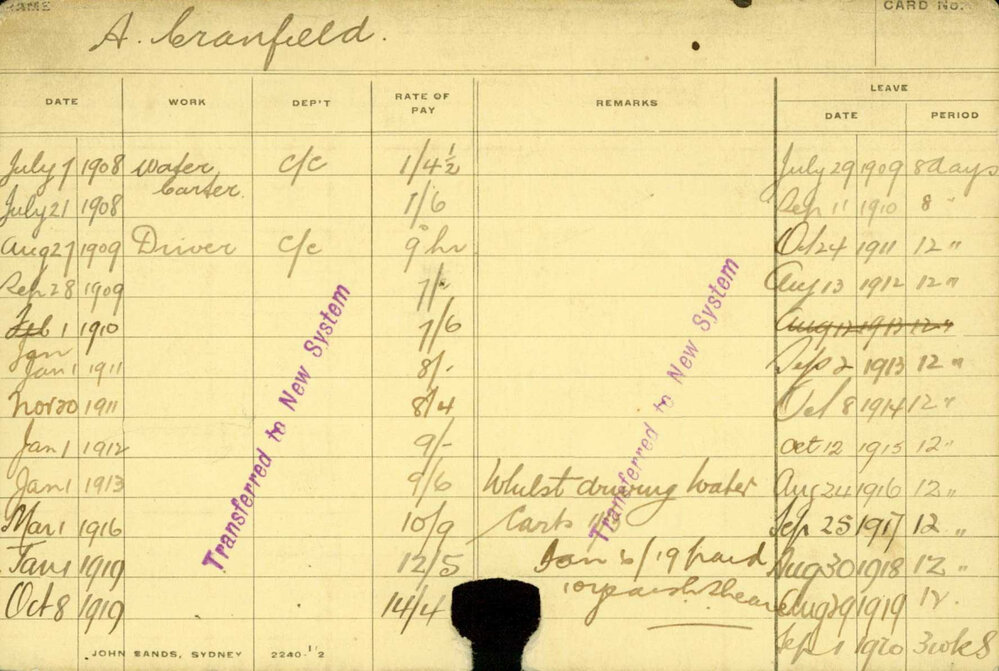 NAME
CARD No.
A. Cranfield.
DATE WORK DEP'T RATE OF PAY REMARKS LEAVE
DATE PERIOD
July 7 1908 Water Carter c/c 1/4½ July 29 1909 8 days
July 21 1908 7/6 Sep 11 1910 8 "
Aug 27 1909 Driver c/c 9 hr Oct 24 1911 12 "
Sep 28 1909 7/- Aug 13 1912 12 "
Feb 1 1910 7/6 Aug 12 1913 12 "
Jan
Jan 1 1911 8/- Sep 2 1913 12 "
Nov 20 1911 8/4 Oct 8 1914 12 "
Jan 1 1912 9/- Oct 12 1915 12 "
Jan 1 1913 9/6 Whilst driving Water Aug 24 1916 12 "
Mar 1 1916 10/9 Carts Sep 25 1917 12 "
Jan 1 1919 12/5 Jan 6/19 paid Aug 30 1918 12 "
Oct 8 1919 14/4 Aug 29 1919 12.
Sep 1 1920 3 wks
Transferred to New System
Transferred to New System
JOHN SANDS, SYDNEY 2240-½